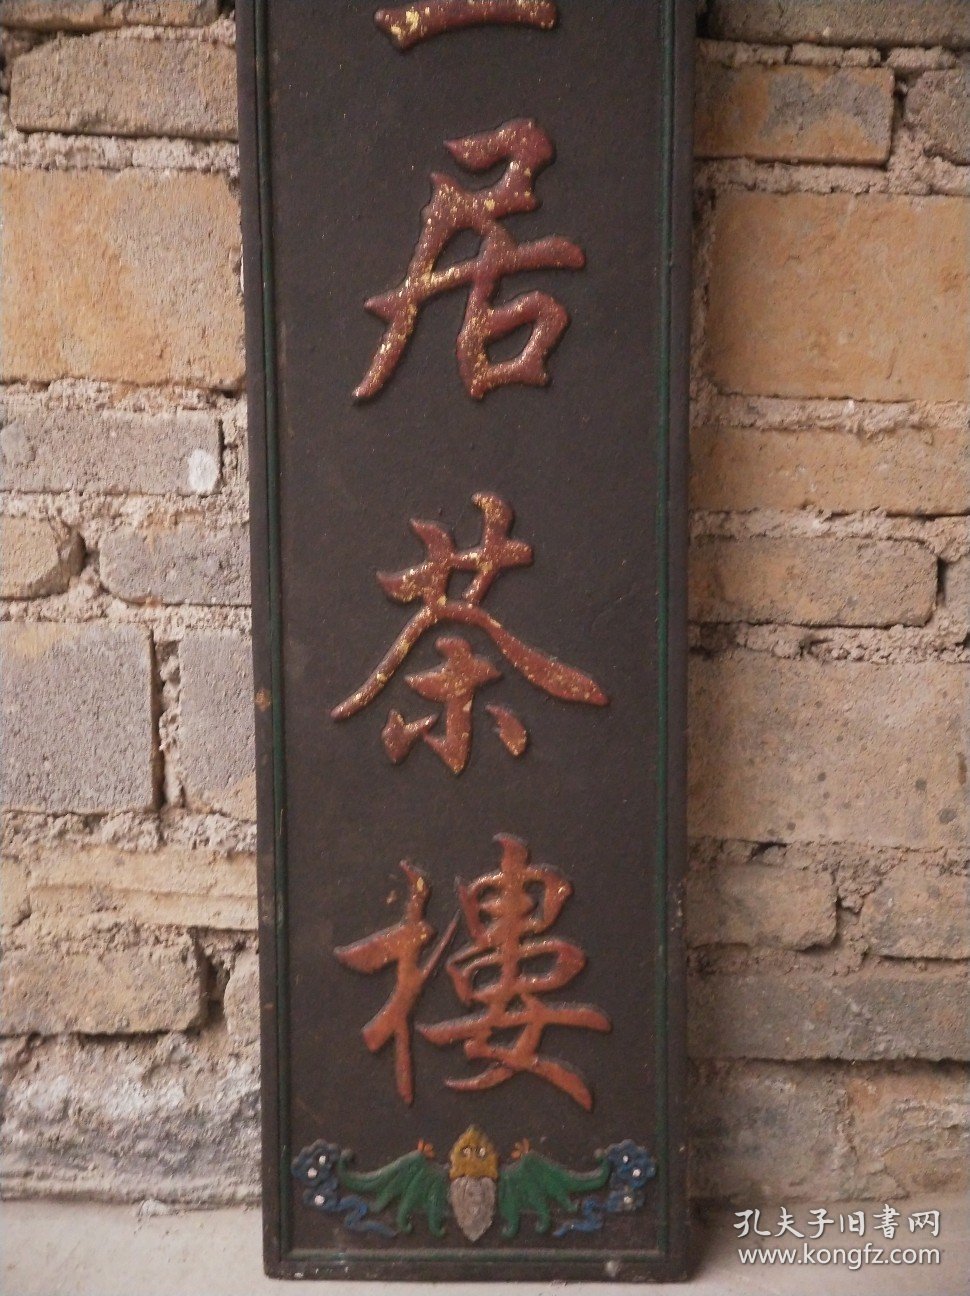 居茶樓
孔夫子旧書网
www.kongfz.com